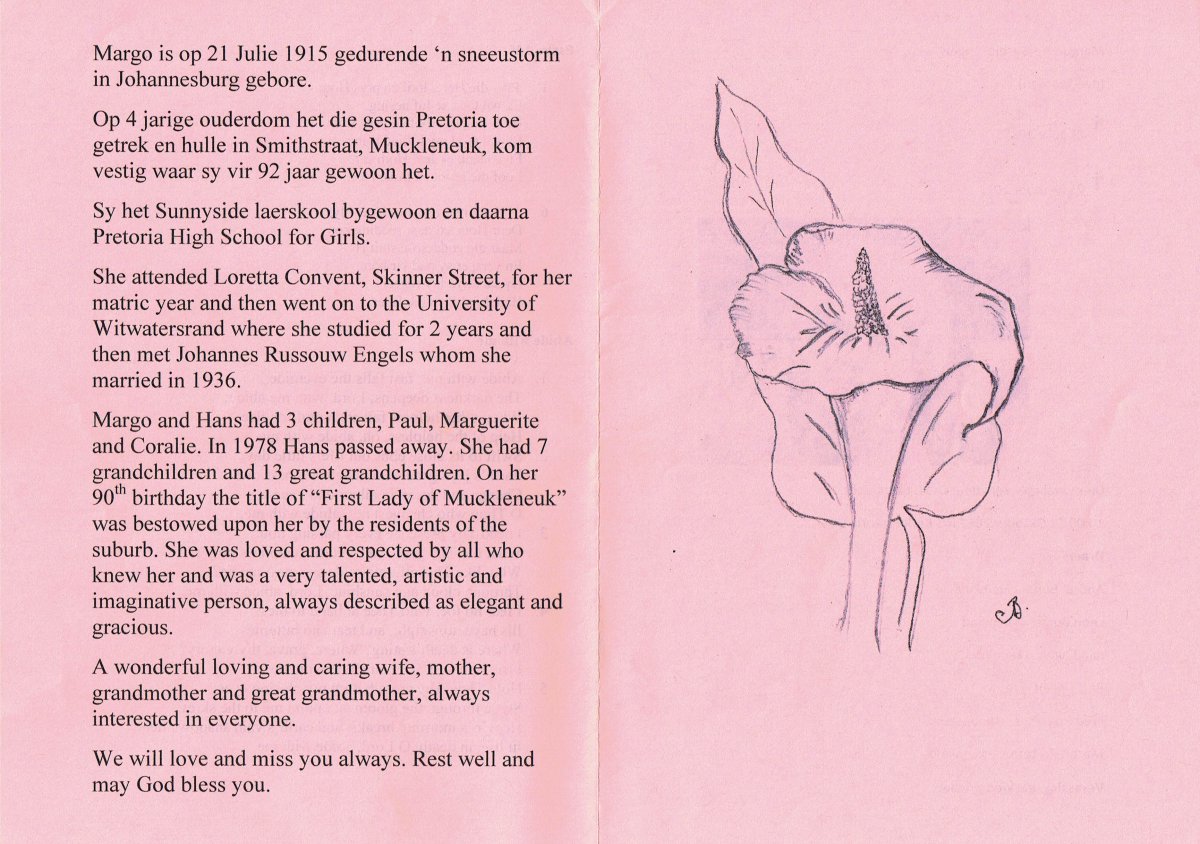 Margo is op 21 Julie 1915 gedurende ‘n sneeustorm
in Johannesburg gebore.
Op 4 jarige ouderdom het die gesin Pretoria toe
getrek en hulle in Smithstraat, Muckleneuk, kom
vestig waar sy vir 92 jaar gewoon het.
Sy het Sunnyside laerskool bygewoon en daarna
Pretoria High School for Girls.
She attended Loretta Convent, Skinner Street, for her
matric year and then went on to the University of
Witwatersrand where she studied for 2 years and
then met Johannes Russouw Engels whom she
married in 1936.
Margo and Hans had 3 children, Paul, Marguerite
and Coralie. In 1978 Hans passed away. She had 7
grandchildren and 13 great grandchildren. On her
90th birthday the title of “First Lady of Muckleneuk”
was bestowed upon her by the residents of the
suburb. She was loved and respected by all who
knew her and was a very talented, artistic and
imaginative person, always described as elegant and
gracious.
A wonderful loving and caring wife, mother,
grandmother and great grandmother, always
interested in everyone.
We will love and miss you always. Rest well and
may God bless you.